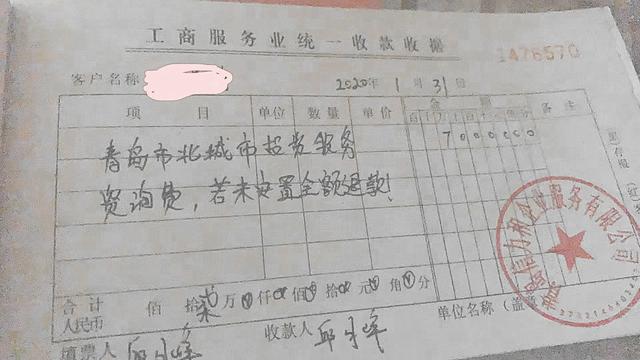 工商服务业统一收款收据
1476570
客户名称 2020年 1月 31日
项目 单位 数量 单价 金额 备注
百 十 万 千 百 十 元 角 分
7 0 0 0 0 0 0
青岛市北城市投资服务
咨询费，若未安置全额退款！
合计 佰 拾 柒 万 0 仟 0 佰 0 拾 0 元 0 角 0 分
人民币
单位名称（盖章）
填票人 邱 收款人 邱
企业服务有限公司